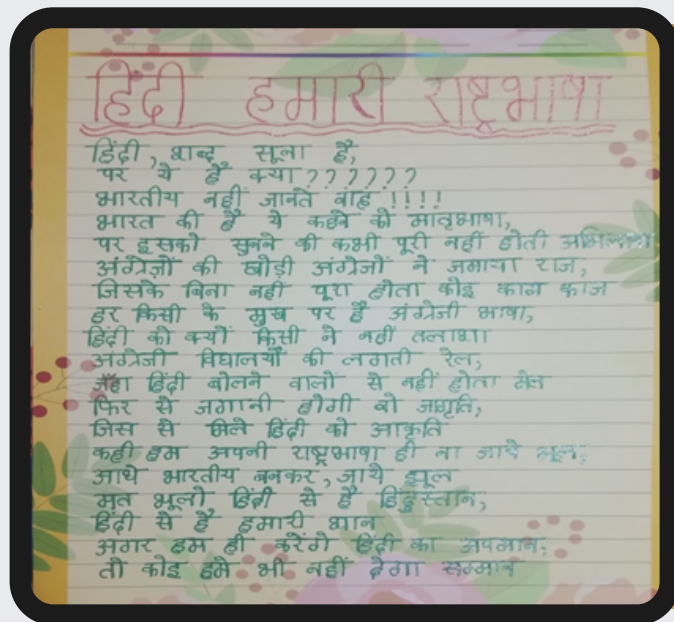 हिंदी हमारी राष्ट्रभाषा
हिंदी, शब्द सूना है,
पर ये है क्या ??????
भारतीय नहीं जानते वाह !!!!
भारत की है ये कहने को मातृभाषा,
पर इसको सुनने की कभी पूरी नहीं होती अभिलाषा
अंग्रेज़ों की छोड़ी अंग्रेजों ने जमाया राज,
जिसके बिना नहीं पूरा होता कोइ काम काज
हर किसी के मुख पर है अंग्रेजी भाषा,
हिंदी को क्यों किसी ने नहीं तलाशा
अंग्रेजी विद्यालयों की लगती रेल,
जँहा हिंदी बोलने वालों से नहीं होता मेल
फिर से जगानी होगी वो जागृति,
जिस से मिले हिंदी को आकृति
कही हम अपनी राष्ट्रभाषा ही ना जाये भूल,
जाये भारतीय बनकर, जाये झूल
मत भूलो हिंदी से है हिंदुस्तान,
हिंदी से है हमारी शान
अगर हम ही करेंगे हिंदी का अपमान,
तो कोइ हमे भी नहीं देगा सम्मान